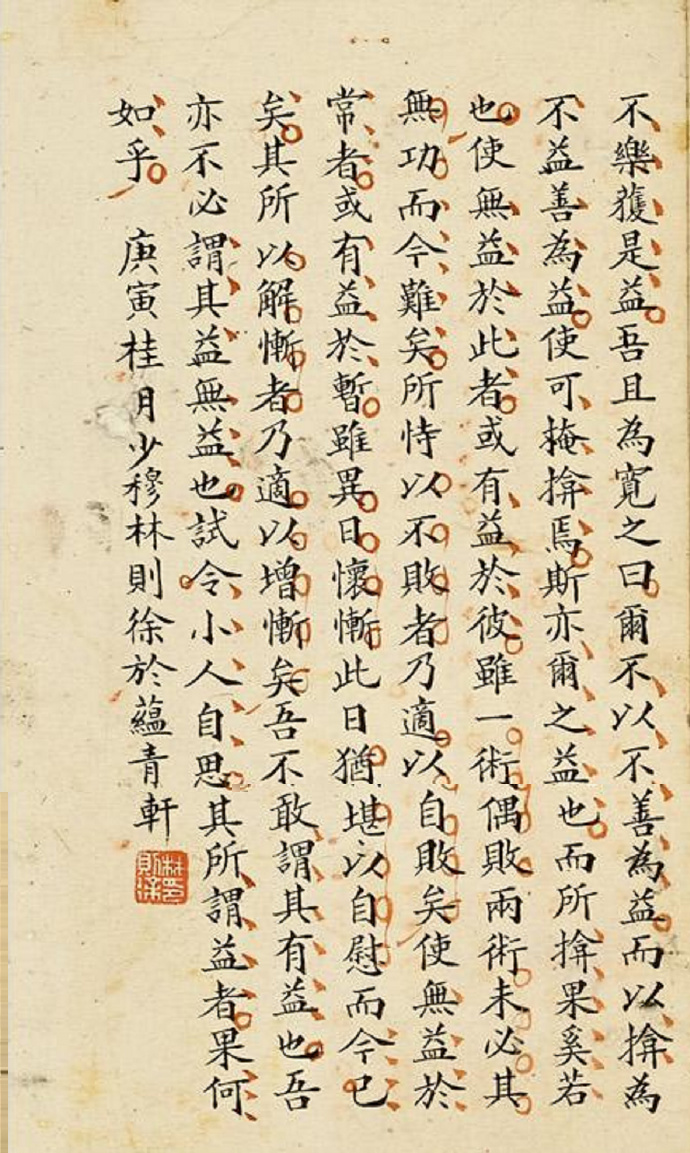 不樂獲是益吾且為寬之曰爾不以不善為益而以揜為
不益善為益使可掩揜焉斯亦爾之益也而所揜果奚若
也使無益於此者或有益於彼雖一術偶敗兩術未必其
無功而今難矣所恃以不敗者乃適以自敗矣使無益於
常者或有益於暫雖異日懷慚此日猶堪以自慰而今已
矣其所以解慚者乃適以增慚矣吾不敢謂其有益也吾
亦不必謂其益無益也試令小人自思其所謂益者果何
如乎 庚寅桂月少穆林則徐於蘊青軒
林印則徐